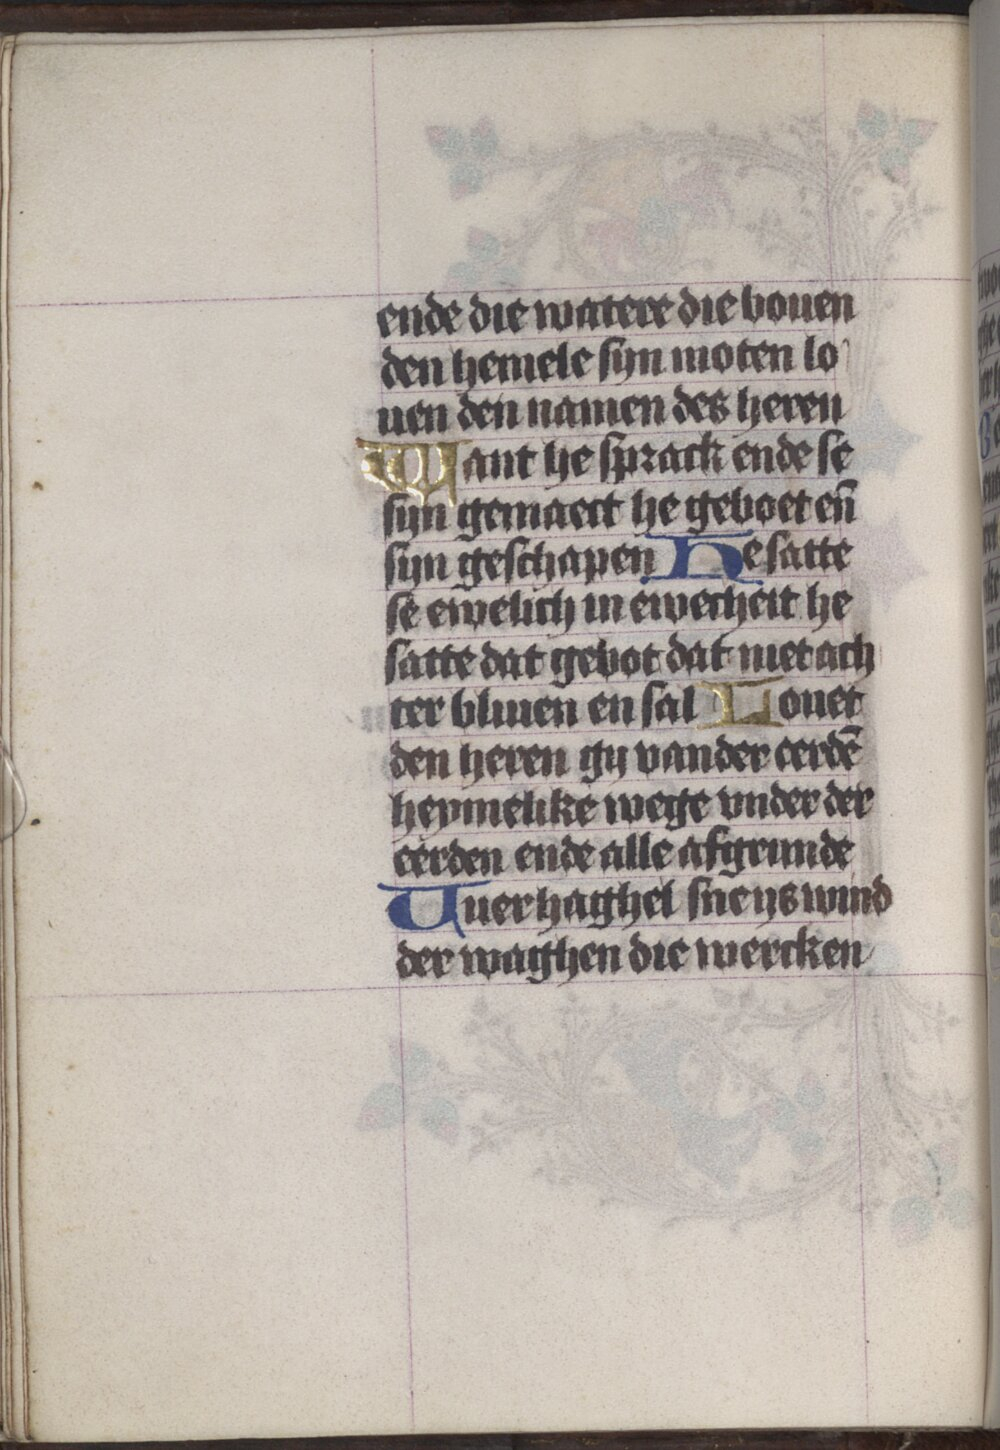 ende die watere die bouen
den hemele syn moten lo
uen den namen des heren
Want he sprack ende se
syn gemaect he geboet en̄
syn geschapen He satte
se ewelich in ewecheit he
satte dat gebot dat niet ach
ter bliuen en sal Louet
den heren gy van der eerdē
heymelike wege vnder der
eerden ende alle afgrunde
Vuer haghel sne ys wind
der waghen die wercken